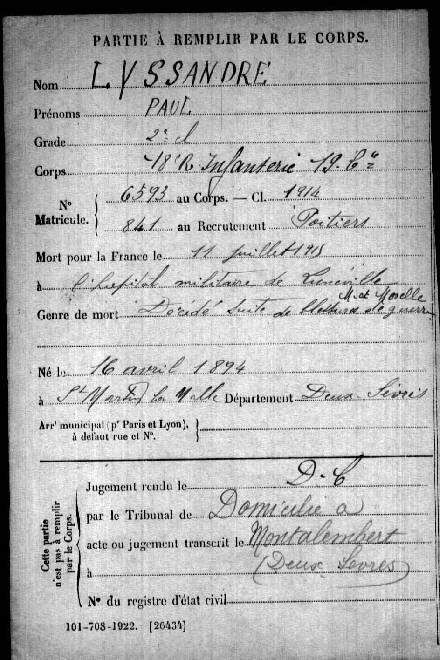 PARTIE À REMPLIR PAR LE CORPS.
Nom LYSSANDRE
Prénoms PAUL
Grade 2e cl
Corps Infanterie 19e Cie
N° Matricule. 6593 au Corps. — Cl. 1914
841 au Recrutement Poitiers
Mort pour la France le 11 juillet
à l'hôpital militaire de Lunéville
M. et Moselle
Genre de mort Décédé suite de blessures de guerre
Né le 16 avril 1894
à St Martin la Département Deux-Sèvres
Arrt municipal (pr Paris et Lyon),
à défaut rue et N°.
Cette partie n'est pas à remplir par le Corps.
Jugement rendu le D. C
par le Tribunal de Domicilié à
acte ou jugement transcrit le Montalembert
à (Deux Sèvres)
N° du registre d'état civil
101-708-1922. [26434]